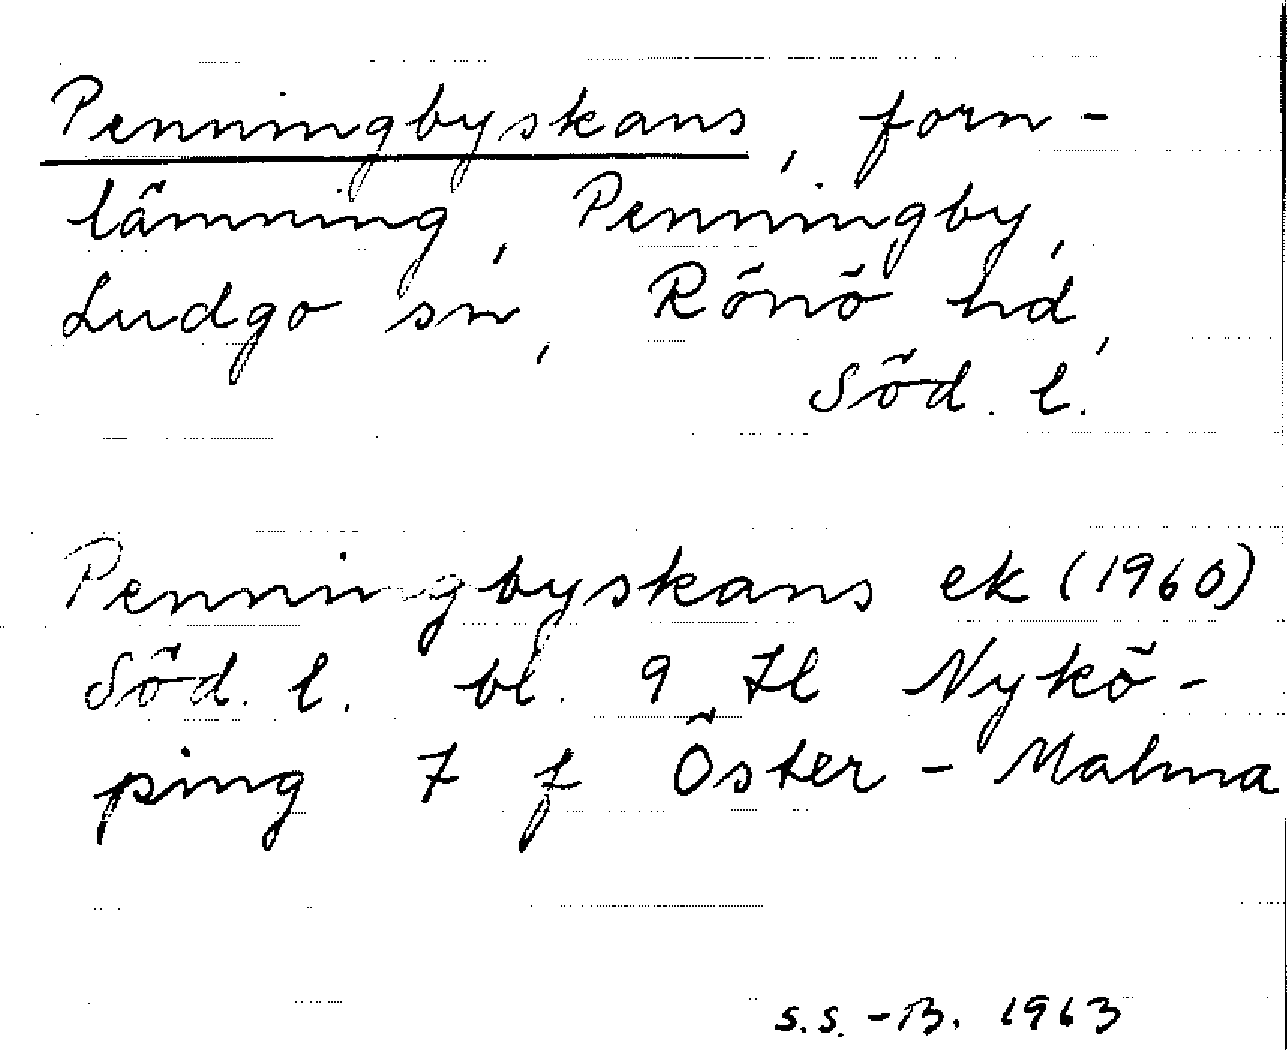 Penningbyskans, forn-
lämning, Penningby,
Ludgo sn, Rönö hd,
Söd. l.
Penningbyskans ek (1960)
Söd. l. bl. 9 H Nykö-
ping 7 f Öster-Malma
S.S.-B. 1963